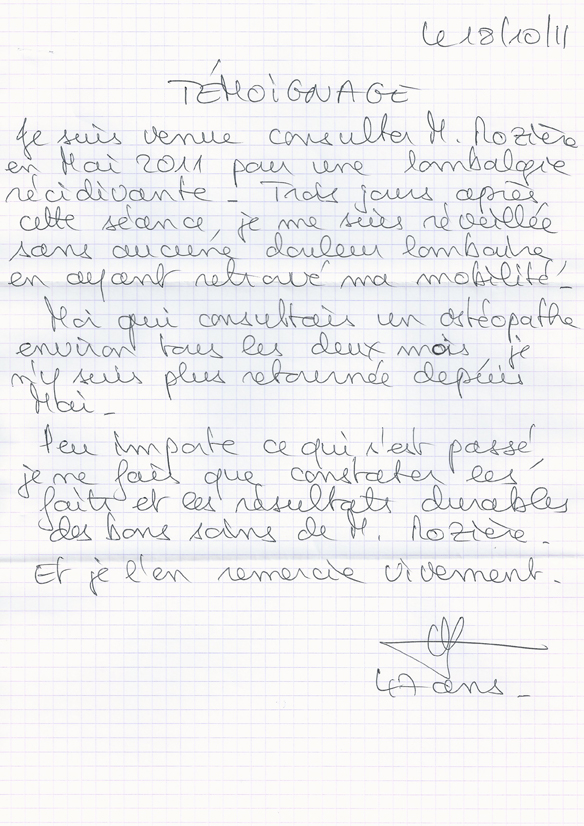 le 18/10/11
TÉMOIGNAGE
Je suis venue consulter M. Rozière
en Mai 2011 pour une lombalgie
récidivante - Trois jours après
cette séance, je me suis réveillée
sans aucune douleur lombaire
en ayant retrouvé ma mobilité -
Moi qui consultais un ostéopathe
environ tous les deux mois, je
n'y suis plus retournée depuis
Mai -
Peu importe ce qui s'est passé
je ne fais que constater les
faits et les résultats durables
des bons soins de M. Rozière -
Et je l'en remercie vivement.
47 ans -